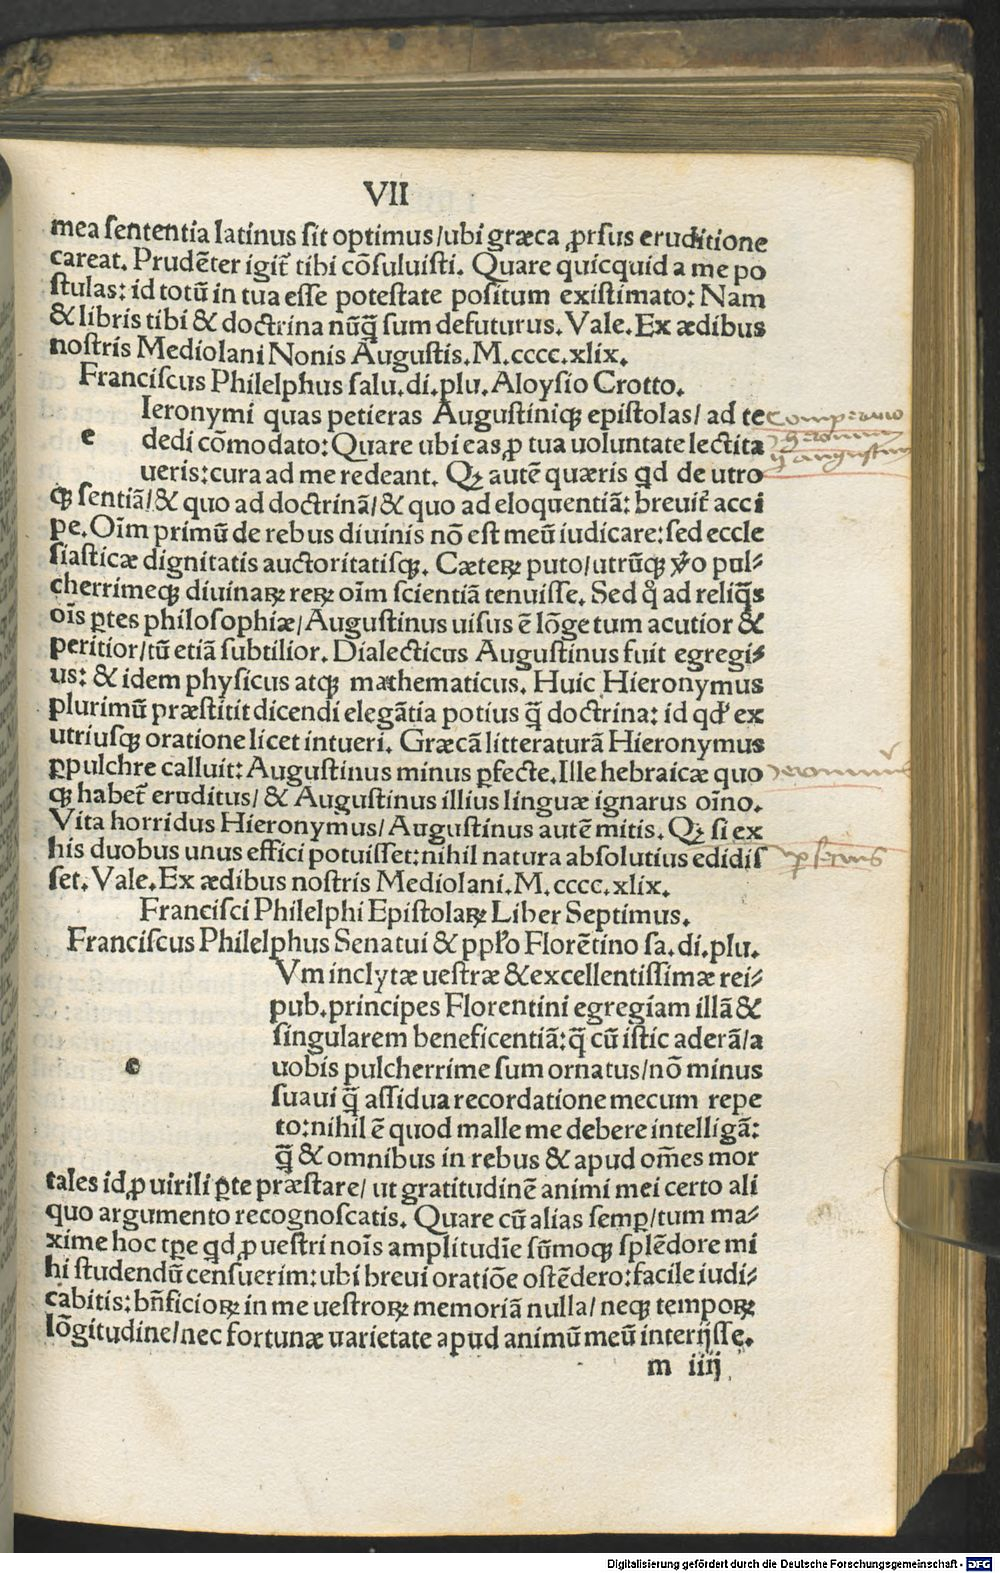 VII
mea sententia latinus sit optimus/ubi græca ꝓrsus eruditione
careat. Prudēter igit᷑ tibi cōsuluisti. Quare quicquid a me po
stulas: id totū in tua esse potestate positum existimato: Nam
& libris tibi & doctrina nūq̄ sum defuturus. Vale. Ex ædibus
nostris Mediolani Nonis Augustis. M.cccc.xlix.
Franciscus Philelphus salu. di. plu. Aloysio Crotto.
Ieronymi quas petieras Augustiniqꝫ epistolas/ ad te
e dedi cōmodato: Quare ubi eas ꝓ tua uoluntate lectita
ueris: cura ad me redeant. Qꝫ autē quæris qd de utro
qꝫ sentiā/& quo ad doctrinā/& quo ad eloquentiā: breuit᷑ acci
pe. Oīm primū de rebus diuinis nō est meū iudicare: sed eccle
siasticæ dignitatis auctoritatisqꝫ. Cæteꝝ puto/utrūqꝫ ꝟo pul-
cherrimeqꝫ diuinaꝝ reꝝ oīm scientiā tenuisse. Sed qͦ ad reliq̄s
oīs ꝑtes philosophiæ/Augustinus uisus ē lōge tum acutior &
peritior/tū etiā subtilior. Dialecticus Augustinus fuit egregi-
us: & idem physicus atqꝫ mathematicus. Huic Hieronymus
plurimū præstitit dicendi elegātia potius q̄ doctrina: id qd' ex
utriusqꝫ oratione licet intueri. Græcā litteraturā Hieronymus
ꝑpulchre calluit: Augustinus minus ꝑfecte. Ille hebraicæ quo
qꝫ habet᷑ eruditus/ & Augustinus illius linguæ ignarus oīno.
Vita horridus Hieronymus/Augustinus autē mitis. Qꝫ si ex
his duobus unus effici potuisset: nihil natura absolutius edidis
set. Vale. Ex ædibus nostris Mediolani. M.cccc.xlix.
Francisci Philelphi Epistolaꝝ Liber Septimus.
Franciscus Philelphus Senatui & ppło Florētino sa. di. plu.
Vm inclytæ uestræ & excellentissimæ rei-
pub. principes Florentini egregiam illā &
singularem beneficentiā: q̄ cū istic aderā/a
c uobis pulcherrime sum ornatus/nō minus
suaui q̄ assidua recordatione mecum repe
to: nihil ē quod malle me debere intelligā:
q̄ & omnibus in rebus & apud om̄es mor
tales id ꝓ uirili ꝑte præstare/ ut gratitudinē animi mei certo ali
quo argumento recognoscatis. Quare cū alias semꝑ/tum ma-
xime hoc tꝑe qd ꝓ uestri noīs amplitudīe sūmoqꝫ splēdore mi
hi studendū censuerim: ubi breui oratiōe ostēdero: facile iudi-
cabitis: bn̄ficioꝝ in me uestroꝝ memoriā nulla/ neqꝫ tempoꝝ
lōgitudine/nec fortunæ uarietate apud animū meū interijsse.
m iiij
Comparatio
Hieronimi
&#x20;augustini
Hieronimus
Digitalisierung gefördert durch die Deutsche Forschungsgemeinschaft - DFG